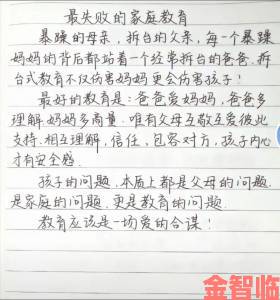 最失败的家庭教育
暴躁的母亲，拆台的父亲，每一个暴躁
妈妈的背后都站着一个经常拆台的爸爸，拆
台式教育不仅伤害妈妈更会伤害孩子！
最好的教育是：爸爸爱妈妈，爸爸多
理解，妈妈多商量。唯有父母互敬互爱彼此
支持，相互理解，信任，包容对方，孩子内心
才有安全感。
孩子的问题，本质上都是父母的问题
是家庭的问题，更是教育的问题。
教育应该是一场爱的合谋！
金智临